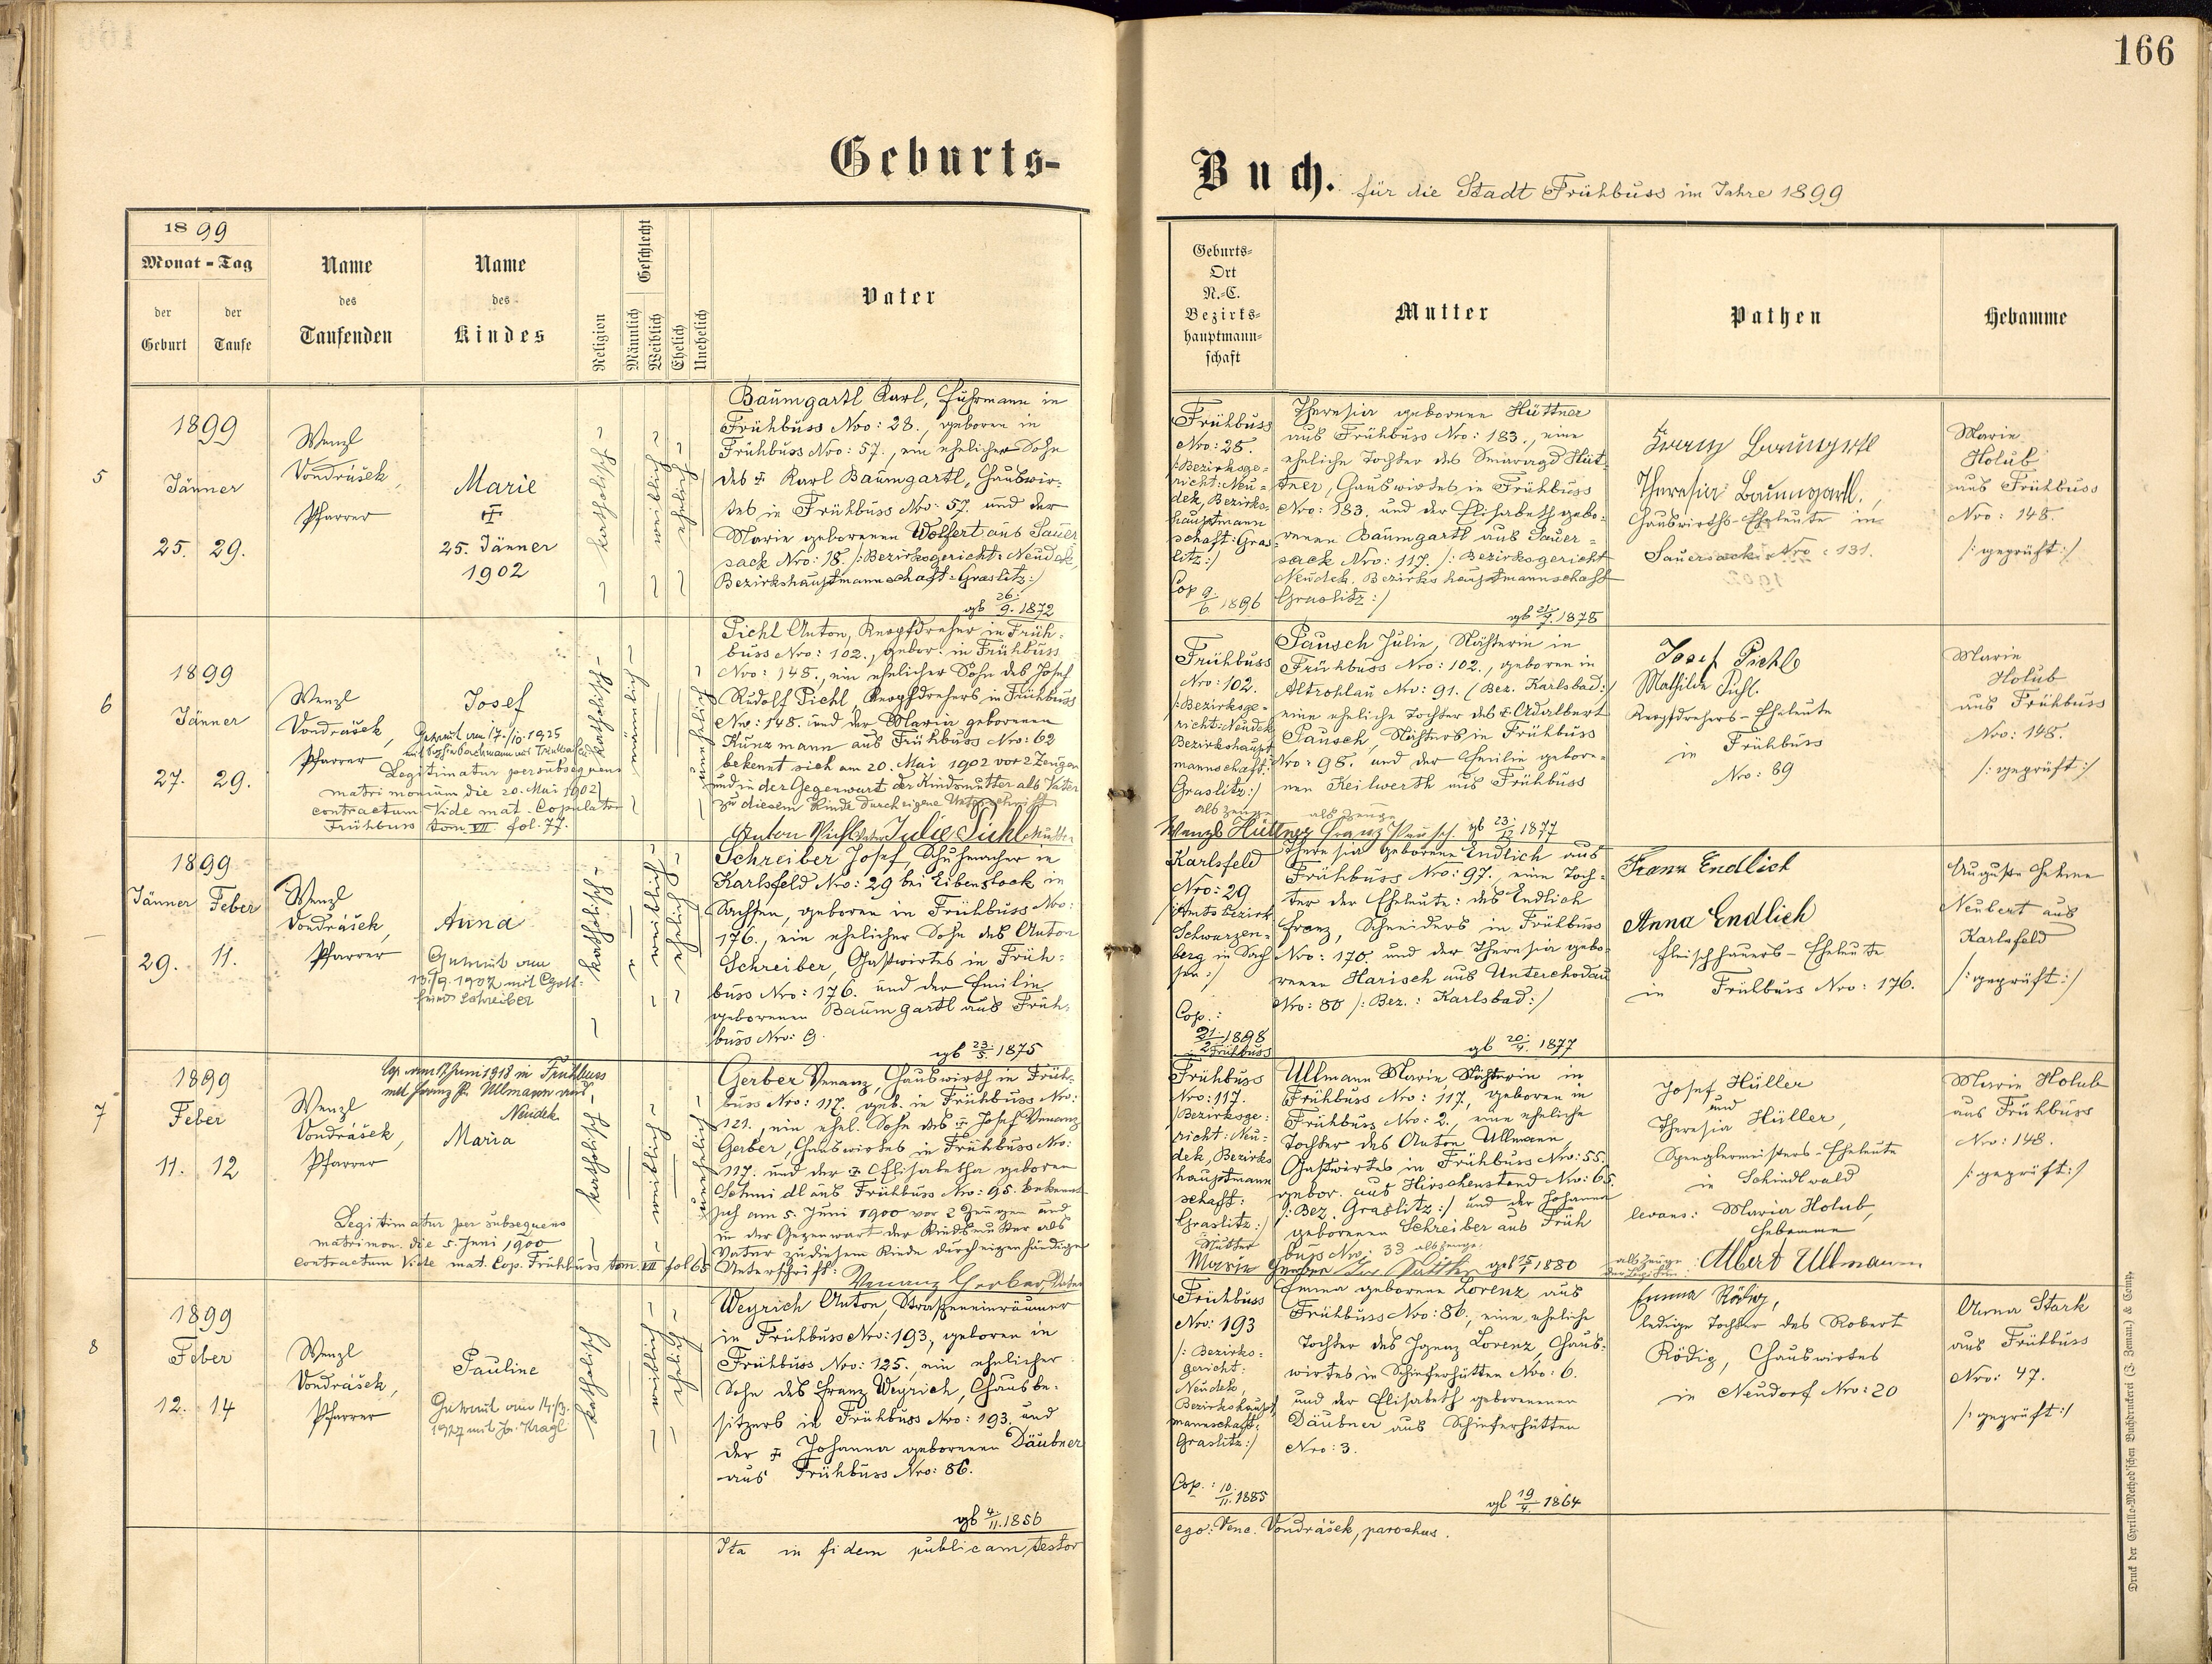 166
Geburts-
Buch. für die Stadt Frühbuss im Jahre 1899
1899
Monat-Tag
der Geburt
der Taufe
Name des Taufenden
Name des Kindes
Religion
Geschlecht
Männlich
Weiblich
Ehelich
Unehelich
Vater
Geburts-
Ort
N.-C.
Bezirks-
hauptmann-
schaft
Mutter
Pathen
Hebamme
5
1899
Jänner
25. 29.
Wenzl
Vondrášek,
Pfarrer
Marie
25. Jänner
1902
katholisch
weiblich
ehelich
Baumgartl Karl, Fuhrmann in
Frühbuss Nro: 28., geboren in
Frühbuss Nro: 57., ein ehelicher Sohn
des † Karl Baumgartl, Hauswir-
tes in Frühbuss Nro: 57. und der
Marie geborenen Wölfert aus Sauer-
sack Nro: 18. /: Bezirksgericht: Neudek,
Bezirkshauptmannschaft: Graslitz:/
gb 26./9. 1872
Frühbuss
Nro: 28.
/:Bezirksge-
richt: Neu-
dek, Bezirks-
hauptmann
schaft: Gras-
litz:/
Cop 9/6. 1896
Theresia geborene Hüttner
aus Frühbuss Nro: 183., eine
eheliche Tochter des Smaragd Hüt-
tner, Hauswirtes in Frühbuss
Nro: 183. und der Elisabeth gebo-
renen Baumgartl aus Sauer-
sack Nro: 117. /: Bezirksgericht
Neudek. Bezirkshauptmannschaft
Graslitz:/
1878
Franz Baumgartl
Theresia Baumgartl,
Hauswirths-Eheleute in
Sauersack Nro: 131.
Marie
Holub
aus Frühbuss
Nro: 148.
/: geprüft:/
6
1899
Jänner
27. 29.
Wenzl
Vondrášek
Pfarrer
Josef
Getraut am 17./10. 1925
Legitimatur per subsequens
matrimonium die 20. Mai 1902
contractum Vide mat. Copulator
Frühbuss tom VII fol. 77.
katholisch
männlich
unehelich
Pichl Anton, Knopfdreher in Früh-
buss Nro: 102., gebor. in Frühbuss
Nro: 148., ein ehelicher Sohn des Josef
Rudolf Pichl, Knopfdrehers in Frühbuss
Nro: 148. und der Maria geborenen
Kunzmann aus Frühbuss Nro: 62
bekennt sich am 20. Mai 1902 vor 2 Zeugen
und in der Gegenwart der Kindsmutter als Vater
zu diesem Kinde durch eigene Unterschrift
Anton Pichl Vater Julie Pichl Mutter
Frühbuss
Nro: 102.
/:Bezirksge-
richt: Neudek
Bezirkshaupt
mannschaft:
Graslitz:/
als Zeuge
Wenzl Hüttner
Pausch Julie, Nähterin in
Frühbuss Nro: 102., geboren in
Altrohlau Nro: 91. (Bez. Karlsbad:/
eine eheliche Tochter des † Adalbert
Pausch, Nähters in Frühbuss
Nro: 98. und der Emilie gebore-
nen Keilwerth aus Frühbuss
als Zeuge
Franz Pausch. gb 23./12 1877
Josef Pichl
Mathilde Pichl.
Knopfdrehers-Eheleute
in Frühbuss
Nro: 89
Marie
Holub
aus Frühbuss
Nro: 148.
/: geprüft:/
1899
Jänner Feber
29. 11.
Wenzl
Vondrášek,
Pfarrer
Anna
Getraut am
mit Gott-
fried Schreiber
katholisch
weiblich
ehelich
Schreiber Josef, Schuhmacher in
Karlsfeld Nro: 29 bei Eibenstock in
Sachsen, geboren in Frühbuss Nro:
176., ein ehelicher Sohn des Anton
Schreiber, Gastwirtes in Früh-
buss Nro: 176. und der Emilie
geborenen Baumgartl aus Früh-
buss Nro: 9.
gb 23./5. 1875
Karlsfeld
Nro: 29
/:Amtsbezirk
Schwarzen-
berg in Sach
sen:/
Cop.:
21./2. 1898
in Frühbuss
Theresia geborene Endlich aus
Frühbuss Nro: 97., eine Toch-
ter der Eheleute: des Endlich
Franz, Schneiders in Frühbuss
Nro: 170. und der Theresia gebo-
renen Harisch aus Unterchodau
Nro: 80 /: Bez.: Karlsbad:/
gb 20./4. 1877
Franz Endlich
Anna Endlich
Fleischhauers-Eheleute
in Frühbuss Nro: 176.
Auguste
Neubert aus
Karlsfeld
/: geprüft:/
7
1899
Feber
11. 12
Cop. am 17. Juni 1918 in Frühbuss
mit Franz P. Ullmann aus
Neudek.
Wenzl
Vondrášek,
Pfarrer
Maria
Legitimatur per subsequens
matrimon. die 5. Juni 1900
contractum Vide mat. Cop. Frühbuss tom. VII fol 65
katholisch
weiblich
unehelich
Gerber Venanz, Hauswirth in Früh-
buss Nro: 117. geb. in Frühbuss Nro:
121., ein ehel. Sohn des † Josef Venanz
Gerber, Hauswirtes in Frühbuss Nro:
117. und der † Elisabetha geboren
Schmidl aus Frühbuss Nro: 95. bekennt
sich am 5. Juni 1900 vor 2 Zeugen und
in der Gegenwart der Kindsmutter als
Vater zu diesem Kinde durch eigenhändige
Unterschrift: Venanz Gerber, Vater
Frühbuss
Nro: 117.
/Bezirksge:
richt: Neu-
dek, Bezirks
hauptmann
schaft:
Graslitz:/
Mutter
Marie Gerber
Ullmann Marie, Nähterin in
Frühbuss Nro: 117, geboren in
Frühbuss Nro: 2., eine eheliche
Tochter des Anton Ullmann,
Gastwirtes in Frühbuss Nro: 55.
gebor. aus Hirschenstand Nro: 65.
/: Bez. Graslitz:/ und der Johanna
geborenen Schreiber aus Früh
buss Nro: 33 als Zeuge.
1880
Josef Hüller
und
Theresia Hüller,
Spenglermeisters-Eheleute
in Schindlwald
levans: Maria Holub,
Hebamme
als Zeuge
Albert Ullmann
Marie Holub
aus Frühbuss
Nro: 148.
/: geprüft:/
8
1899
Feber
12. 14
Wenzl
Vondrášek,
Pfarrer
Pauline
Getraut am
1927 mit Jos. Kragl
katholisch
weiblich
ehelich
Weyrich Anton, Strasseneinräumer
in Frühbuss Nro: 193, geboren in
Frühbuss Nro: 125., ein ehelicher
Sohn des Franz Weyrich, Hausbe-
sitzers in Frühbuss Nro: 193. und
der † Johanna geborenen Däubner
aus Frühbuss Nro: 86.
gb 4./11. 1856
Ita in fidem publicam testor
Frühbuss
Nro: 193
/: Bezirks-
gericht:
Neudek,
Bezirkshaupt
mannschaft:
Graslitz:/
Cop.: 10./11. 1885
Emma geborene Lorenz aus
Frühbuss Nro: 86, eine eheliche
Tochter des Ignaz Lorenz, Haus-
wirtes in Schieferhütten Nro: 6.
und der Elisabeth geborenenen
Däubner aus Schieferhütten
Nro: 3.
gb 19/4. 1864
Emma Rödig,
ledige Tochter des Robert
Rödig, Hauswirtes
in Neudorf Nro: 20
Anna Stark
aus Frühbuss
Nro: 47.
/: geprüft:/
ego: Venc. Vondrášek, parochus.
Druck der Cyrillo-Method'schen Buchdruckerei (J. Zeman.) & Comp.